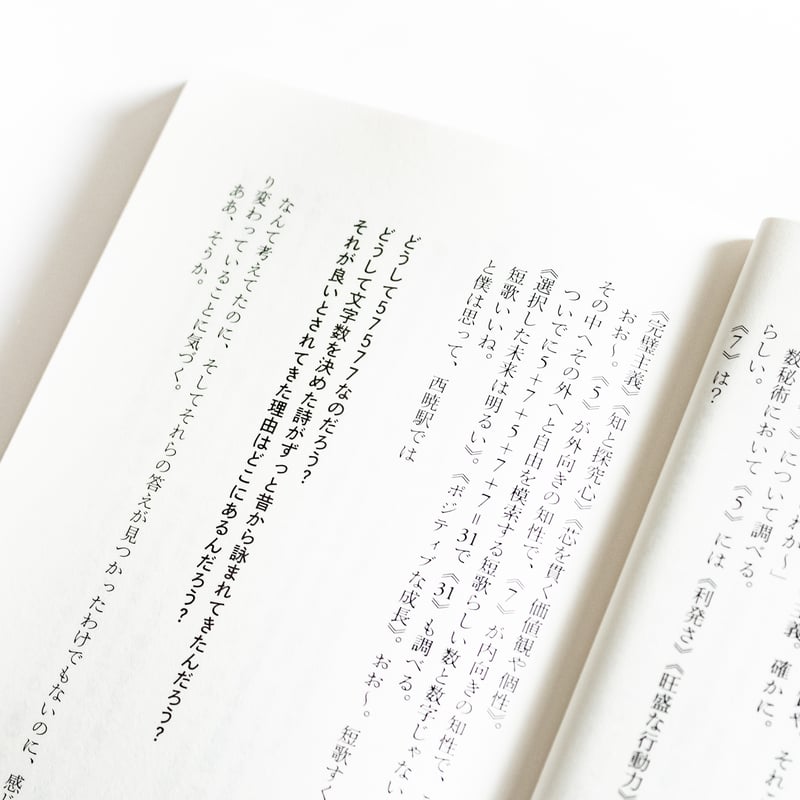 について調べる。
数秘術において《5》には《利発さ》《旺盛な行動力》
らしい。
《7》は？
《完璧主義》《知と探究心》《芯を貫く価値観や個性》。
おお〜。《5》が外向きの知性で、《7》が内向きの知性で、
その中へその外へと自由を模索する短歌らしい数と数字じゃない
ついでに5＋7＋5＋7＋7＝31で《31》も調べる。
《選択した未来は明るい》。《ポジティブな成長》。おお〜。短歌すく
短歌いいね。
と僕は思って、西暁駅では
どうして57577なのだろう？
どうして文字数を決めた詩がずっと昔から詠まれてきたんだろう？
それが良いとされてきた理由はどこにあるんだろう？
なんて考えてたのに、そしてそれらの答えが見つかったわけでもないのに、感じ
り変わっていることに気づく。
ああ、そうか。